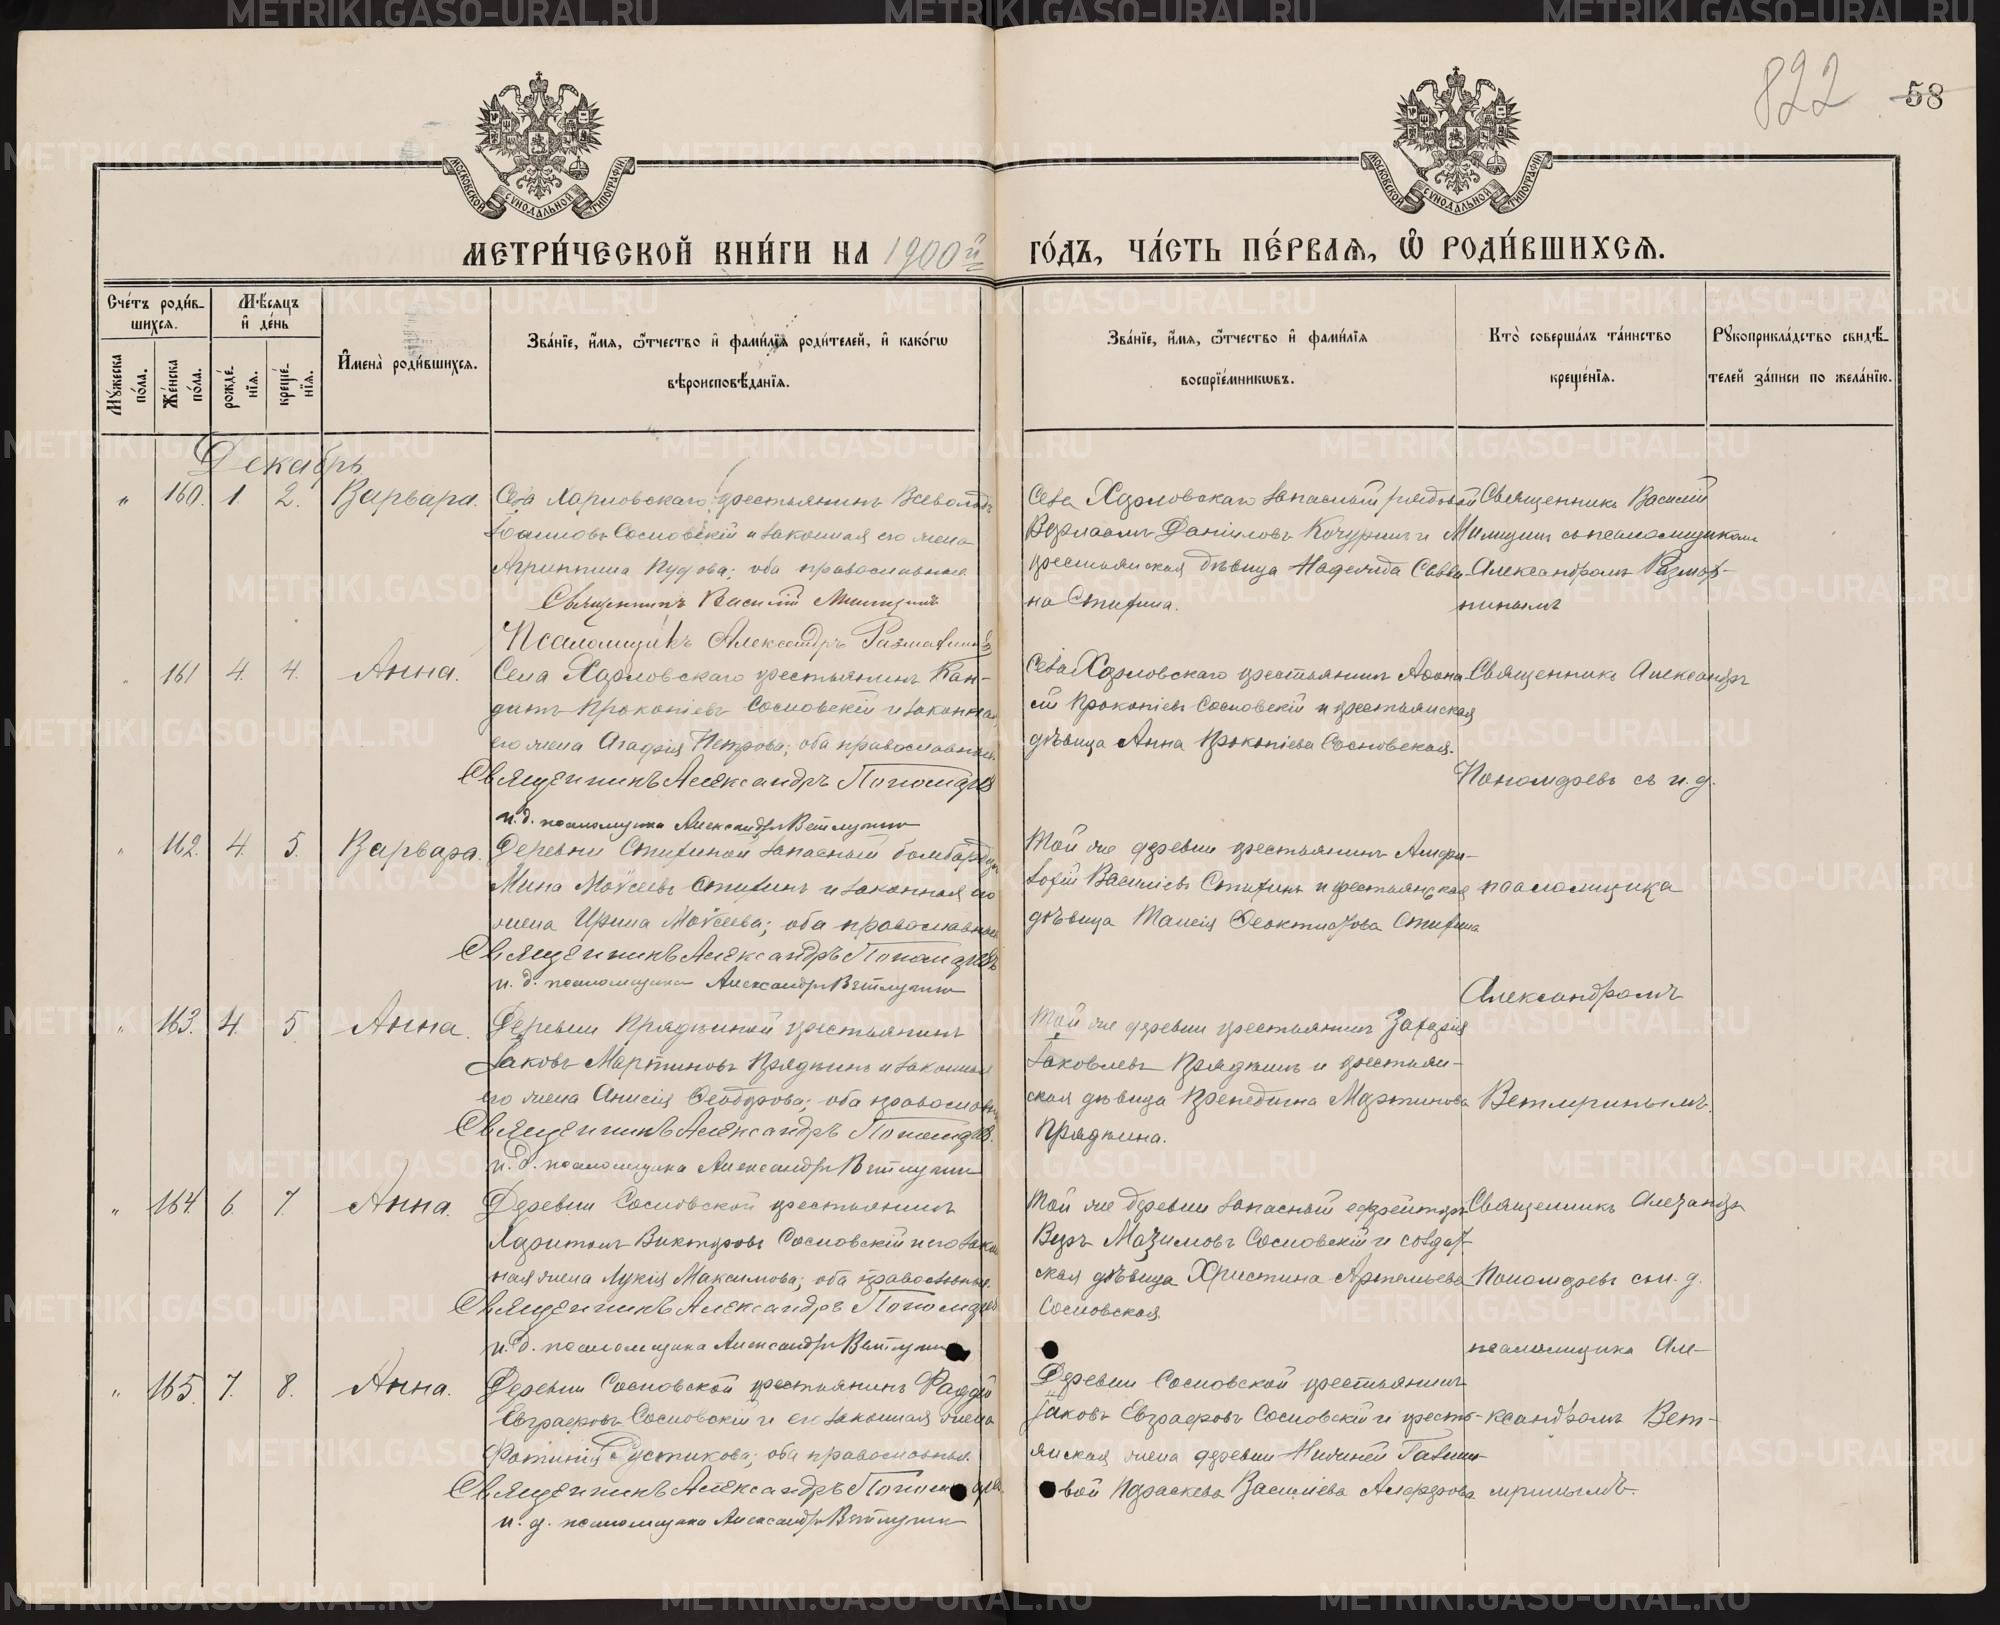 822
58
МОСКОВСКОЙ СѴНОДАЛЬНОЙ ТИПОГРАФІИ
МОСКОВСКОЙ СѴНОДАЛЬНОЙ ТИПОГРАФІИ
МЕТРИ́ЧЕСКОЙ КНИ́ГИ НА 1900й ГО́ДЪ, ЧА́СТЬ ПЕ́РВАѦ, Ѽ РОДИ́ВШИХСѦ.
Сче́тъ роди́в-
шихсѧ.
Мѣ́сѧцъ
и҆ де́нь
Мꙋ́жеска
по́ла.
Же́нска
по́ла.
рожде́-
нїѧ.
креще́-
нїѧ.
И҆мена̀ роди́вшихсѧ.
Зва́нїе, и҆́мѧ, ѻ҆́тчество и҆ фами́лїѧ роди́телей, и҆ како́гѡ
вѣроисповѣ́данїѧ.
Зва́нїе, и҆́мѧ, ѻ҆́тчество и҆ фами́лїѧ
воспрїе́мникѡвъ.
Кто̀ соверша́лъ та́инство
креще́нїѧ.
Рꙋкоприкла́дство свидѣ́-
телей за́писи по жела́нїю.
Декабрь
" 160. 1. 2. Варвара. Села Харловскаго крестьянинъ Всеволодъ
Іоанновъ Сосновскій и законная его жена
Агриппина Пудова; оба православные
Священникъ Василій
Псаломщикъ Александръ
Села Харловскаго запасный рядовой
Варлаамъ Даніиловъ Кочуринъ и
крестьянская дѣвица Надежда Савви-
на Стихина.
Священникъ Василій
съ псаломщикомъ
Александромъ
" 161 4. 4. Анна. Села Харловскаго крестьянинъ Кан-
дитъ Прокопіевъ Сосновскій и законная
его жена Агафія Петрова; оба православные.
Священникъ Александръ Пономаревъ
и. д. псаломщика Александръ
Села Харловскаго крестьянинъ Афана-
сій Прокопіевъ Сосновскій и крестьянская
дѣвица Анна Прокопіева Сосновская.
Священникъ Александръ
Пономаревъ съ и. д.
" 162. 4. 5. Варвара. Деревни Стихиной запасный бомбардиръ
Мина Моѵсеевъ Стихинъ и законная его
жена Ирина Моѵсеева; оба православные
Священникъ Александръ Пономаревъ
и. д. псаломщика Александръ
Той же деревни крестьянинъ
Василіевъ Стихинъ и крестьянская
дѣвица Таисія Феоктистова Стихина
псаломщика
" 163. 4. 5. Анна. Деревни Прядкиной крестьянинъ
Іаковъ Мартиновъ Прядкинъ и законная
его жена Анисія Феодорова; оба православные
Священникъ Александръ Пономаревъ.
и. д. псаломщика Александръ
Той же деревни крестьянинъ Захарія
Іаковлевъ Прядкинъ и крестьян-
ская дѣвица Мартинова
Прядкина.
Александромъ
" 164. 6. 7. Анна. Деревни Сосновской крестьянинъ
Харитонъ Викторовъ Сосновскій и его закон-
ная жена Лукія Максимова; оба православные.
Священникъ Александръ Пономаревъ
и. д. псаломщика Александръ
Той же деревни запасный ефрейторъ
Максимовъ Сосновскій и солдат-
ская дѣвица Христина Артемьева
Сосновская.
Священникъ Александръ
Пономаревъ съ и. д.
псаломщика Але-
" 165. 7. 8. Анна. Деревни Сосновской крестьянинъ Фаддей
Евграфовъ Сосновскій и его законная жена
Фотинія Рустикова; оба православные.
Священникъ Александръ
и. д. псаломщика Александръ
Деревни Сосновской крестьянинъ
Іаковъ Евграфовъ Сосновскій и кресть-
янская жена деревни Нижней
Параскева Василіева Алферова
ксандромъ
METRIKI.GASO-URAL.RU